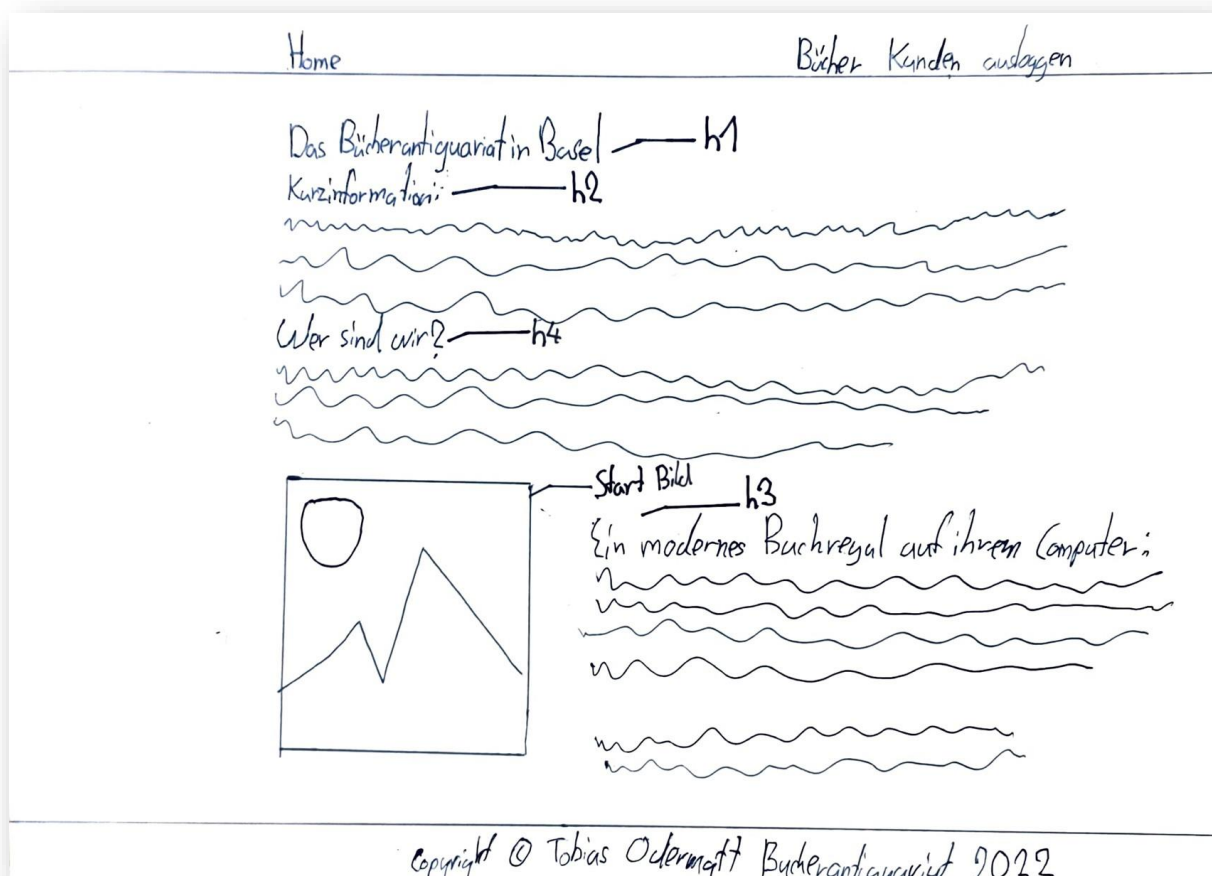 Home Bücher Kunden ausloggen
Das Bücherantiquariat in Basel h1
Kurzinformation: h2
Wer sind wir? h4
Start Bild
h3
Ein modernes Buchregal auf ihrem Computer:
Copyright © Tobias Odermatt Bucherantiquariat 2022